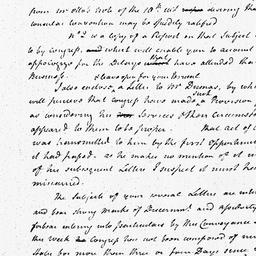 from Mr Otto's Note of the 10th int desiring tha
consular convention may be speedily ratified
No 2 is a copy of a Report on that Subject
to by congress, and which will enable you to account
apologize for the Delays that have attended that
Business. & leave open for your Perusal
I also enclose, a Letter to Mr Dumas, by wh
will perceive that congress have made such a Provision
as considering his Services & their Circumstan
appeared to them to be proper. That act of
was transmitted to him by the first opportunit
it had passed. as he makes no mention of it
of his subsequent Letters I suspect it must ha
miscarried.
The Subjects of your several Letters are inter
and bear strong marks of Discernmt. and
forbear entering into particulars by this Conveyance
the week congress has not been composed of
States for more than three or four Days since